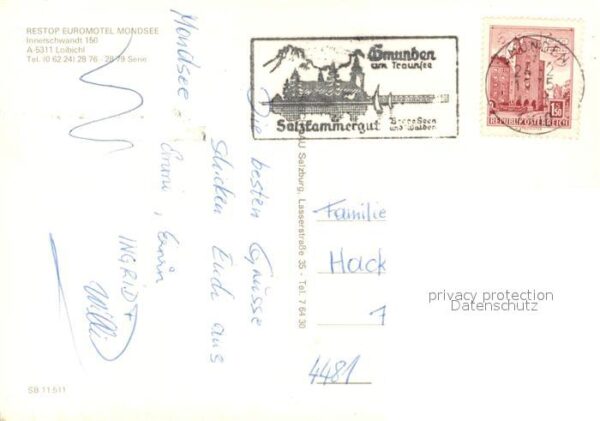 RESTOP EUROMOTEL MONDSEE
Innerschwandt 150
A-5311 Loibichl
Tel. (0 62 24) 28 76 - 28 79 Serie
Gmunden
am Traunsee
Salzkammergut
Bergen Seen
und Wälder
GMUNDEN
REPUBLIK ÖSTERREICH
Mondsee
Die besten Grüsse
schicken Euch aus
Erwin
INGRID +
Willi
AU Salzburg, Lasserstraße 35 - Tel. 7 64 30
Familie
Hack
7
4481
privacy protection
Datenschutz
SB 11511